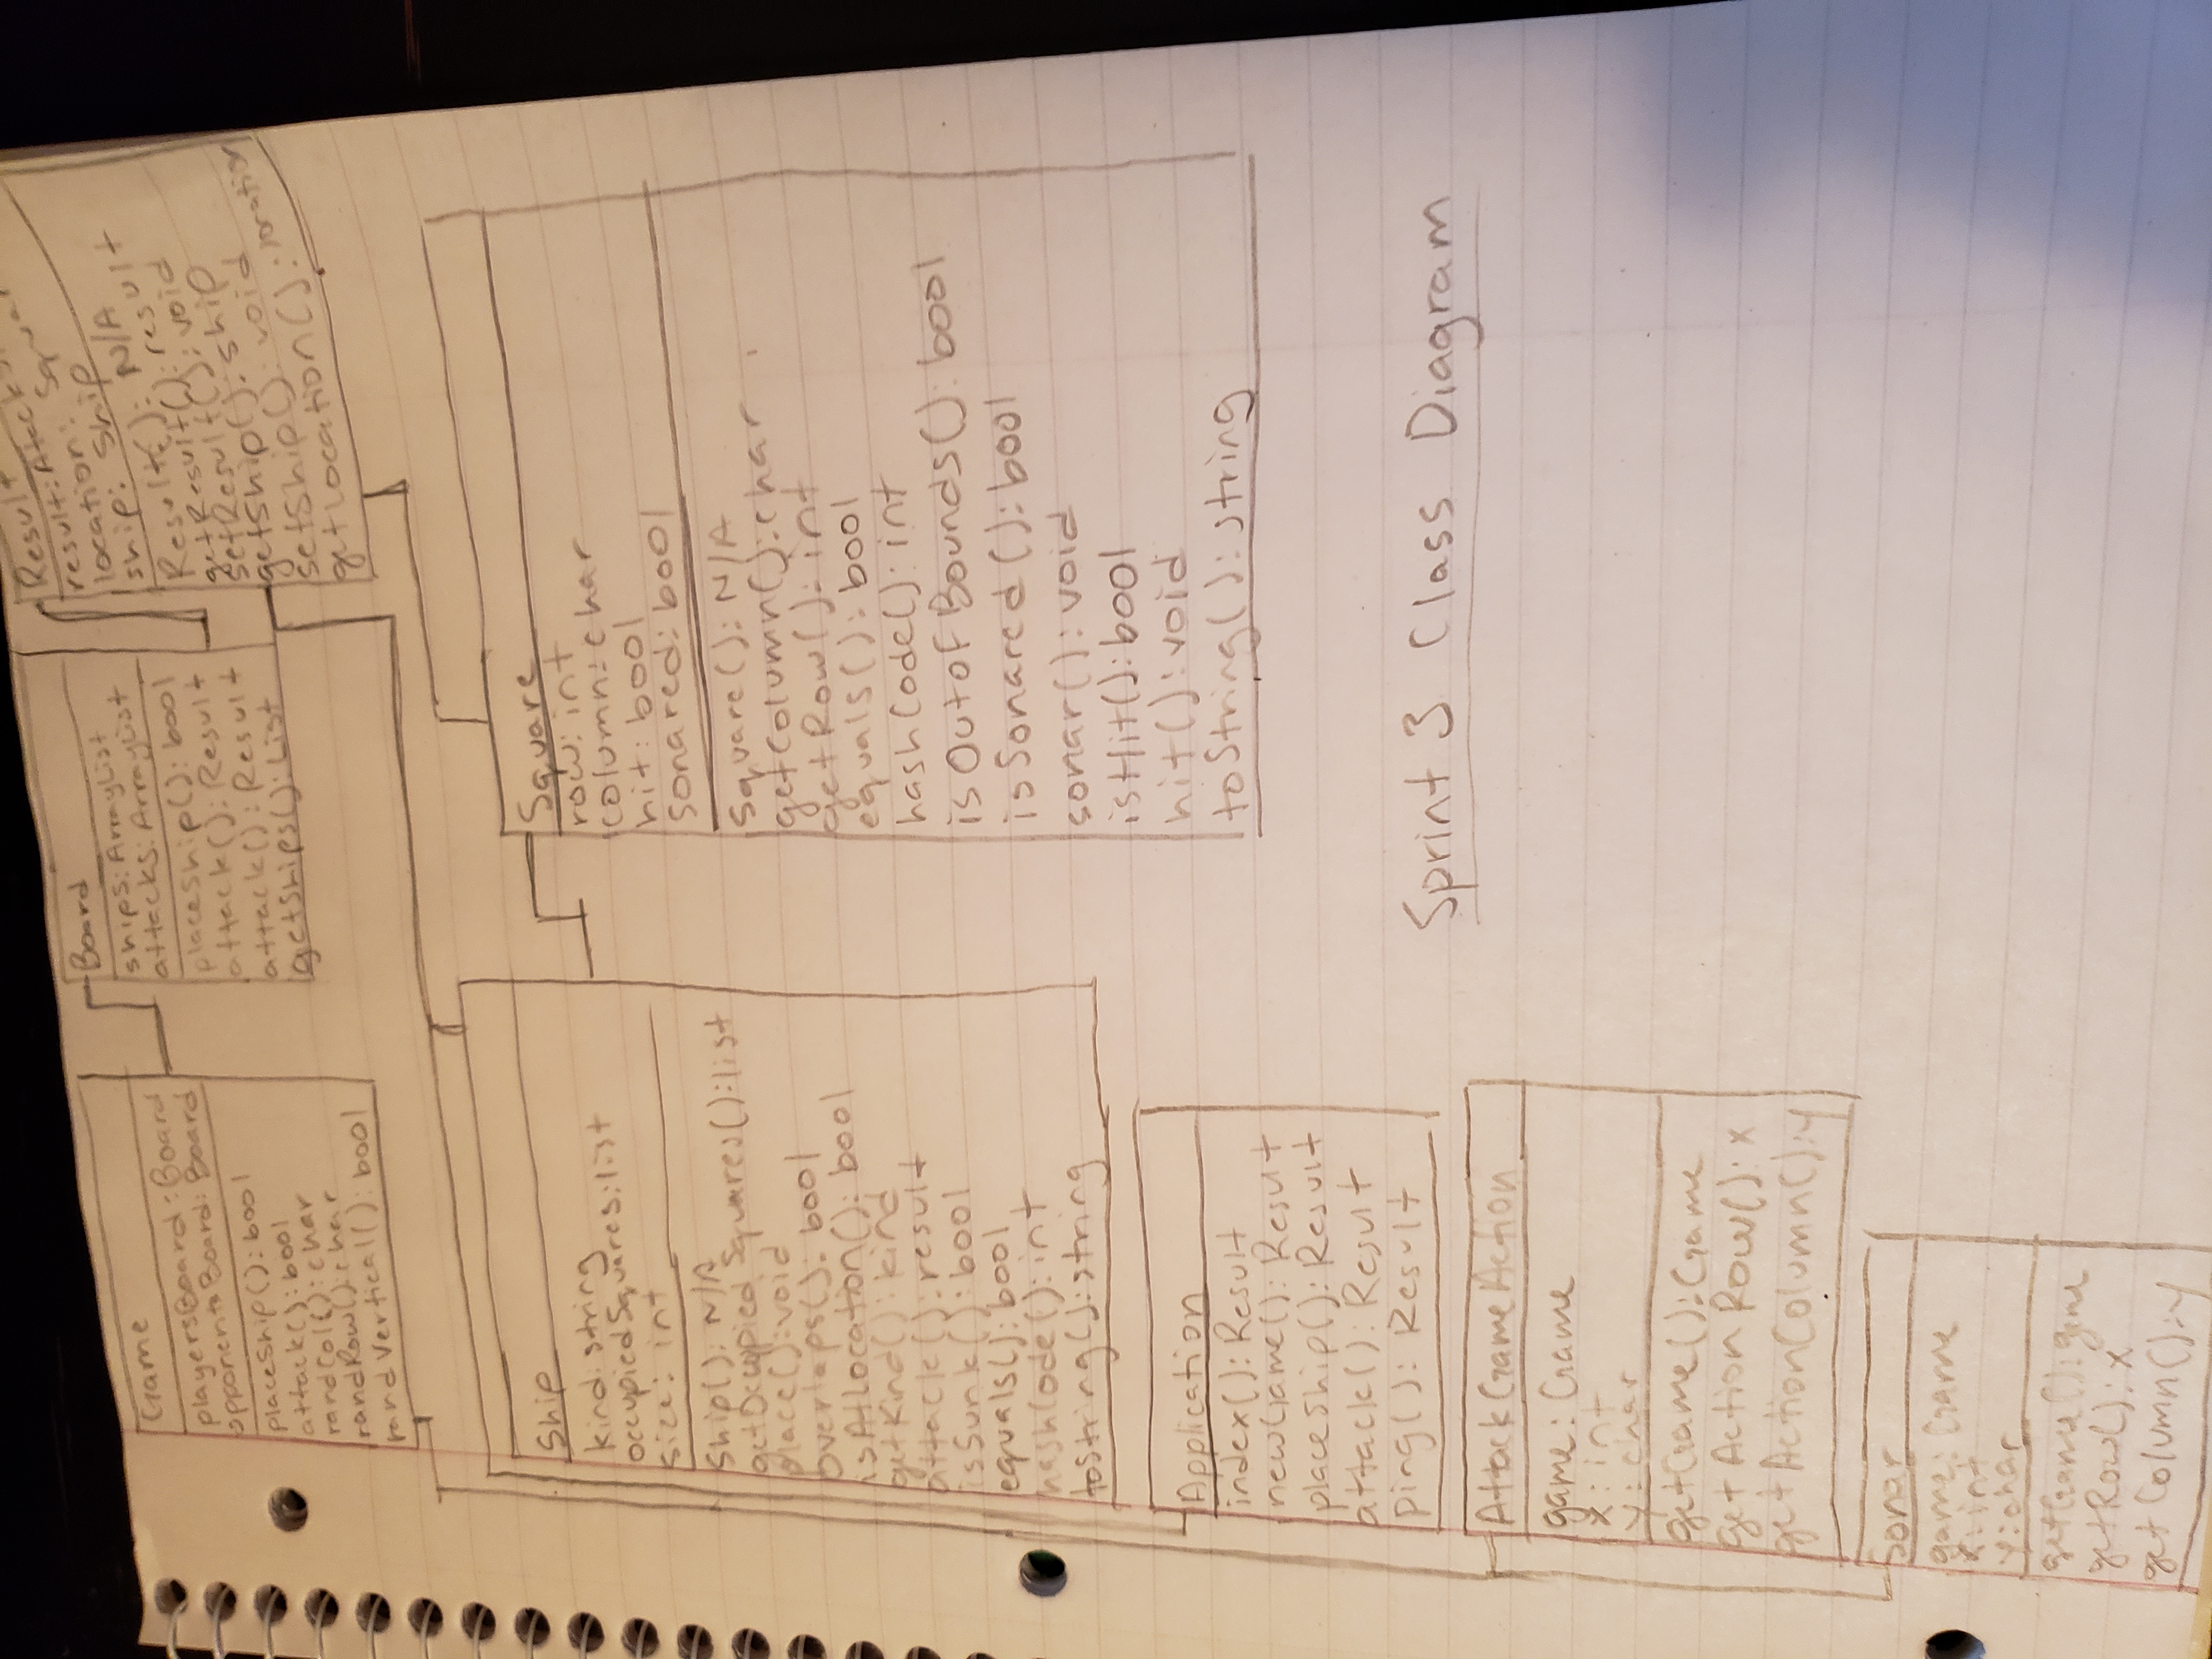 Game
playersBoard: Board
opponentsBoard: Board
placeShip(): bool
attack(): bool
randCol(): char
randRow(): char
randVertical(): bool
Board
ships: ArrayList
attacks: ArrayList
placeShip(): bool
attack(): Result
attack(): Result
getShips(): List
Result
result:
location:
ship: Ship
Result(): N/A
getResult(): result
setResult(): void
getShip(): ship
setShip(): void
getLocation(): location
Ship
kind: string
occupiedSquares: list
size: int
Ship(): N/A
getOccupiedSquares(): list
place(): void
overlaps(): bool
isAtLocation(): bool
getKind(): kind
attack(): result
isSunk(): bool
equals(): bool
hashCode(): int
toString(): string
Square
row: int
column: char
hit: bool
sonared: bool
Square(): N/A
getColumn(): char
getRow(): int
equals(): bool
hashCode(): int
isOutofBounds(): bool
isSonared(): bool
sonar(): void
isHit(): bool
hit(): void
toString(): string
Application
index(): Result
newGame(): Result
placeShip(): Result
attack(): Result
ping(): Result
Sprint 3 Class Diagram
AttackGameAction
game: Game
x: int
y: char
getGame(): Game
getActionRow(): x
getActionColumn(): y
Sonar
game: Game
x: int
y: char
getGame(): game
getRow(): x
getColumn(): y